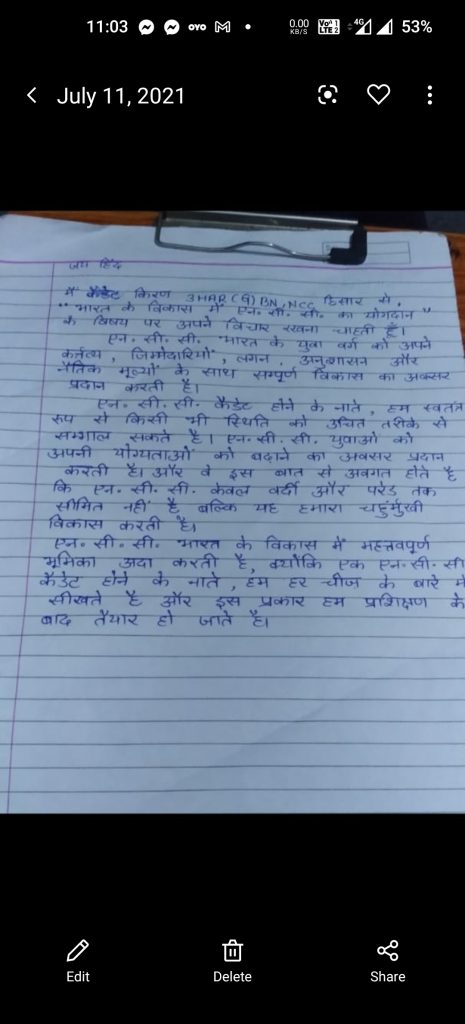 11:03 OYO 0.00 KB/S Vo 1 LTE 2 4G 53%
July 11, 2021
जय हिंद
मैं कैडेट किरण 3HAR(G)BN, NCC हिसार से,
"भारत के विकास में एन. सी. सी. का योगदान"
के विषय पर अपने विचार रखना चाहती हूँ।
एन. सी. सी. भारत के युवा वर्ग को अपने
कर्तव्य, जिमोदारियों, लगन, अनुशासन और
नैतिक मूल्यों के साथ सम्पूर्ण विकास का अक्सर
प्रदान करती है।
एन. सी. सी. कैडेट होने के नाते, हम स्वतंत्र
रूप से किसी भी स्थिति को उचित तरीके से
सम्भाल सकते है। एन. सी. सी. युवाओं को
अपनी योग्यताओं को बढाने का अवसर प्रदान
करती है। और वे इस बात से अवगत होते है
कि एन. सी. सी. केवल वर्दी और परेड तक
सीमित नहीं है, बल्कि यह हमारा चहुंर्मुखी
विकास करती है।
एन. सी. सी. भारत के विकास में महत्तवपूर्ण
भूमिका अदा करती है, क्योंकि एक एन. सी. सी
कैडेट होने के नाते, हम हर चीज के बारे में
सीखते है और इस प्रकार हम प्रशिक्षण के
बाद तैयार हो जाते है।
Edit Delete Share